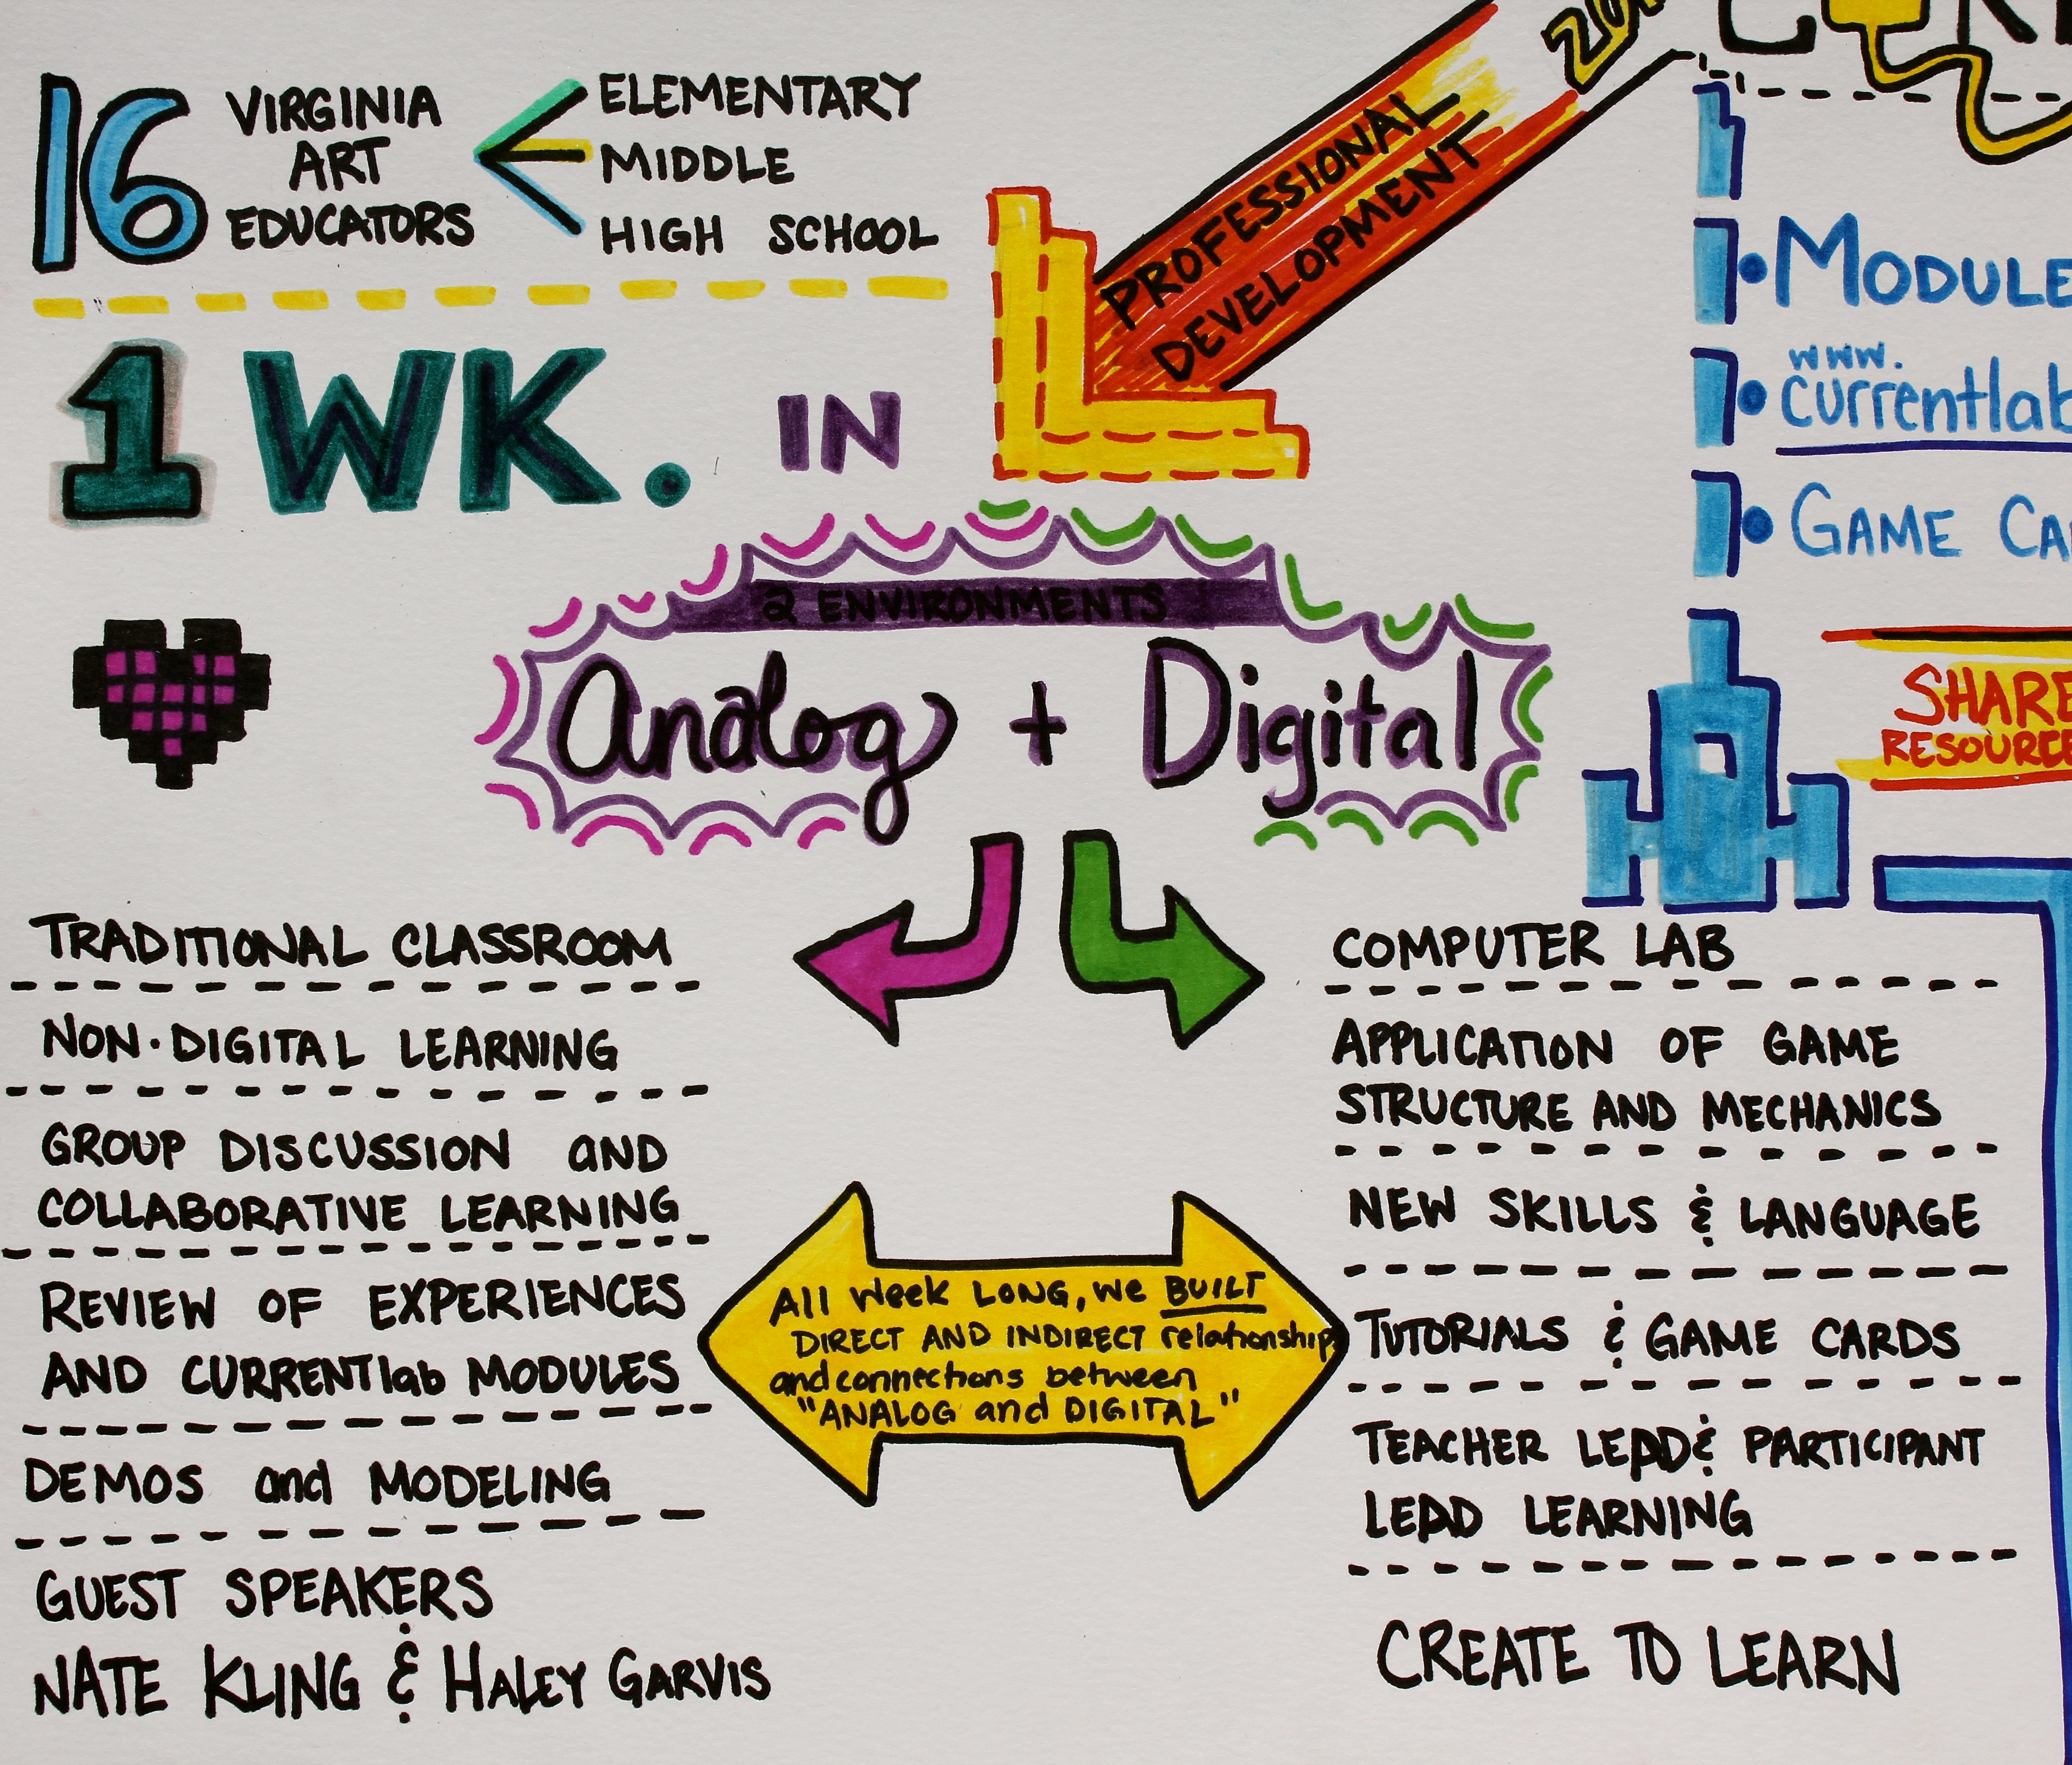 16 VIRGINIA
ART
EDUCATORS
ELEMENTARY
MIDDLE
HIGH SCHOOL
1 WK. IN
PROFESSIONAL
DEVELOPMENT
MODULE
www.
currentlab
GAME
SHARE
RESOURCE
2 ENVIRONMENTS
Analog + Digital
TRADITIONAL CLASSROOM
NON·DIGITAL LEARNING
GROUP DISCUSSION and
COLLABORATIVE LEARNING
REVIEW OF EXPERIENCES
AND CURRENTlab MODULES
DEMOS and MODELING
GUEST SPEAKERS
NATE KLING & HALEY GARVIS
All week LONG, we BUILT
DIRECT AND INDIRECT relationships
and connections between
"ANALOG and DIGITAL"
COMPUTER LAB
APPLICATION OF GAME
STRUCTURE AND MECHANICS
NEW SKILLS & LANGUAGE
TUTORIALS & GAME CARDS
TEACHER LEAD & PARTICIPANT
LEAD LEARNING
CREATE TO LEARN